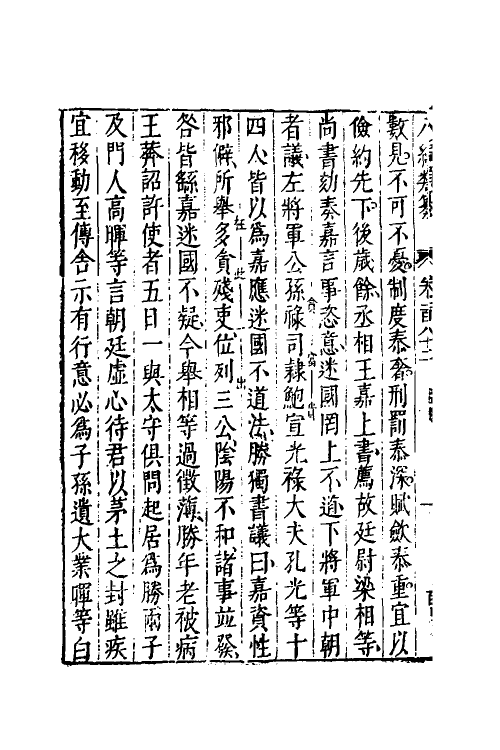 八編類纂　卷一百八十二　一
數見不可不憂制度泰奢刑罰泰深賦斂泰重宜以
儉約先下後歲餘丞相王嘉上書薦故廷尉梁相等
尚書劾奏嘉言事恣意迷國罔上不道下將軍中朝
者議左將軍公孫祿司隸鮑宣光祿大夫孔光等十
四人皆以爲嘉應迷國不道法勝獨書議曰嘉資性
邪僻所舉多貪殘吏位列三公陰陽不和諸事並廢
咎皆繇嘉迷國不疑今舉相等過微薄勝年老被病
王莽詔許使者五日一與太守俱問起居爲勝兩子
及門人高暉等言朝廷虛心待君以茅土之封雖疾
宜移動至傳舍示有行意必爲子孫遺大業暉等白